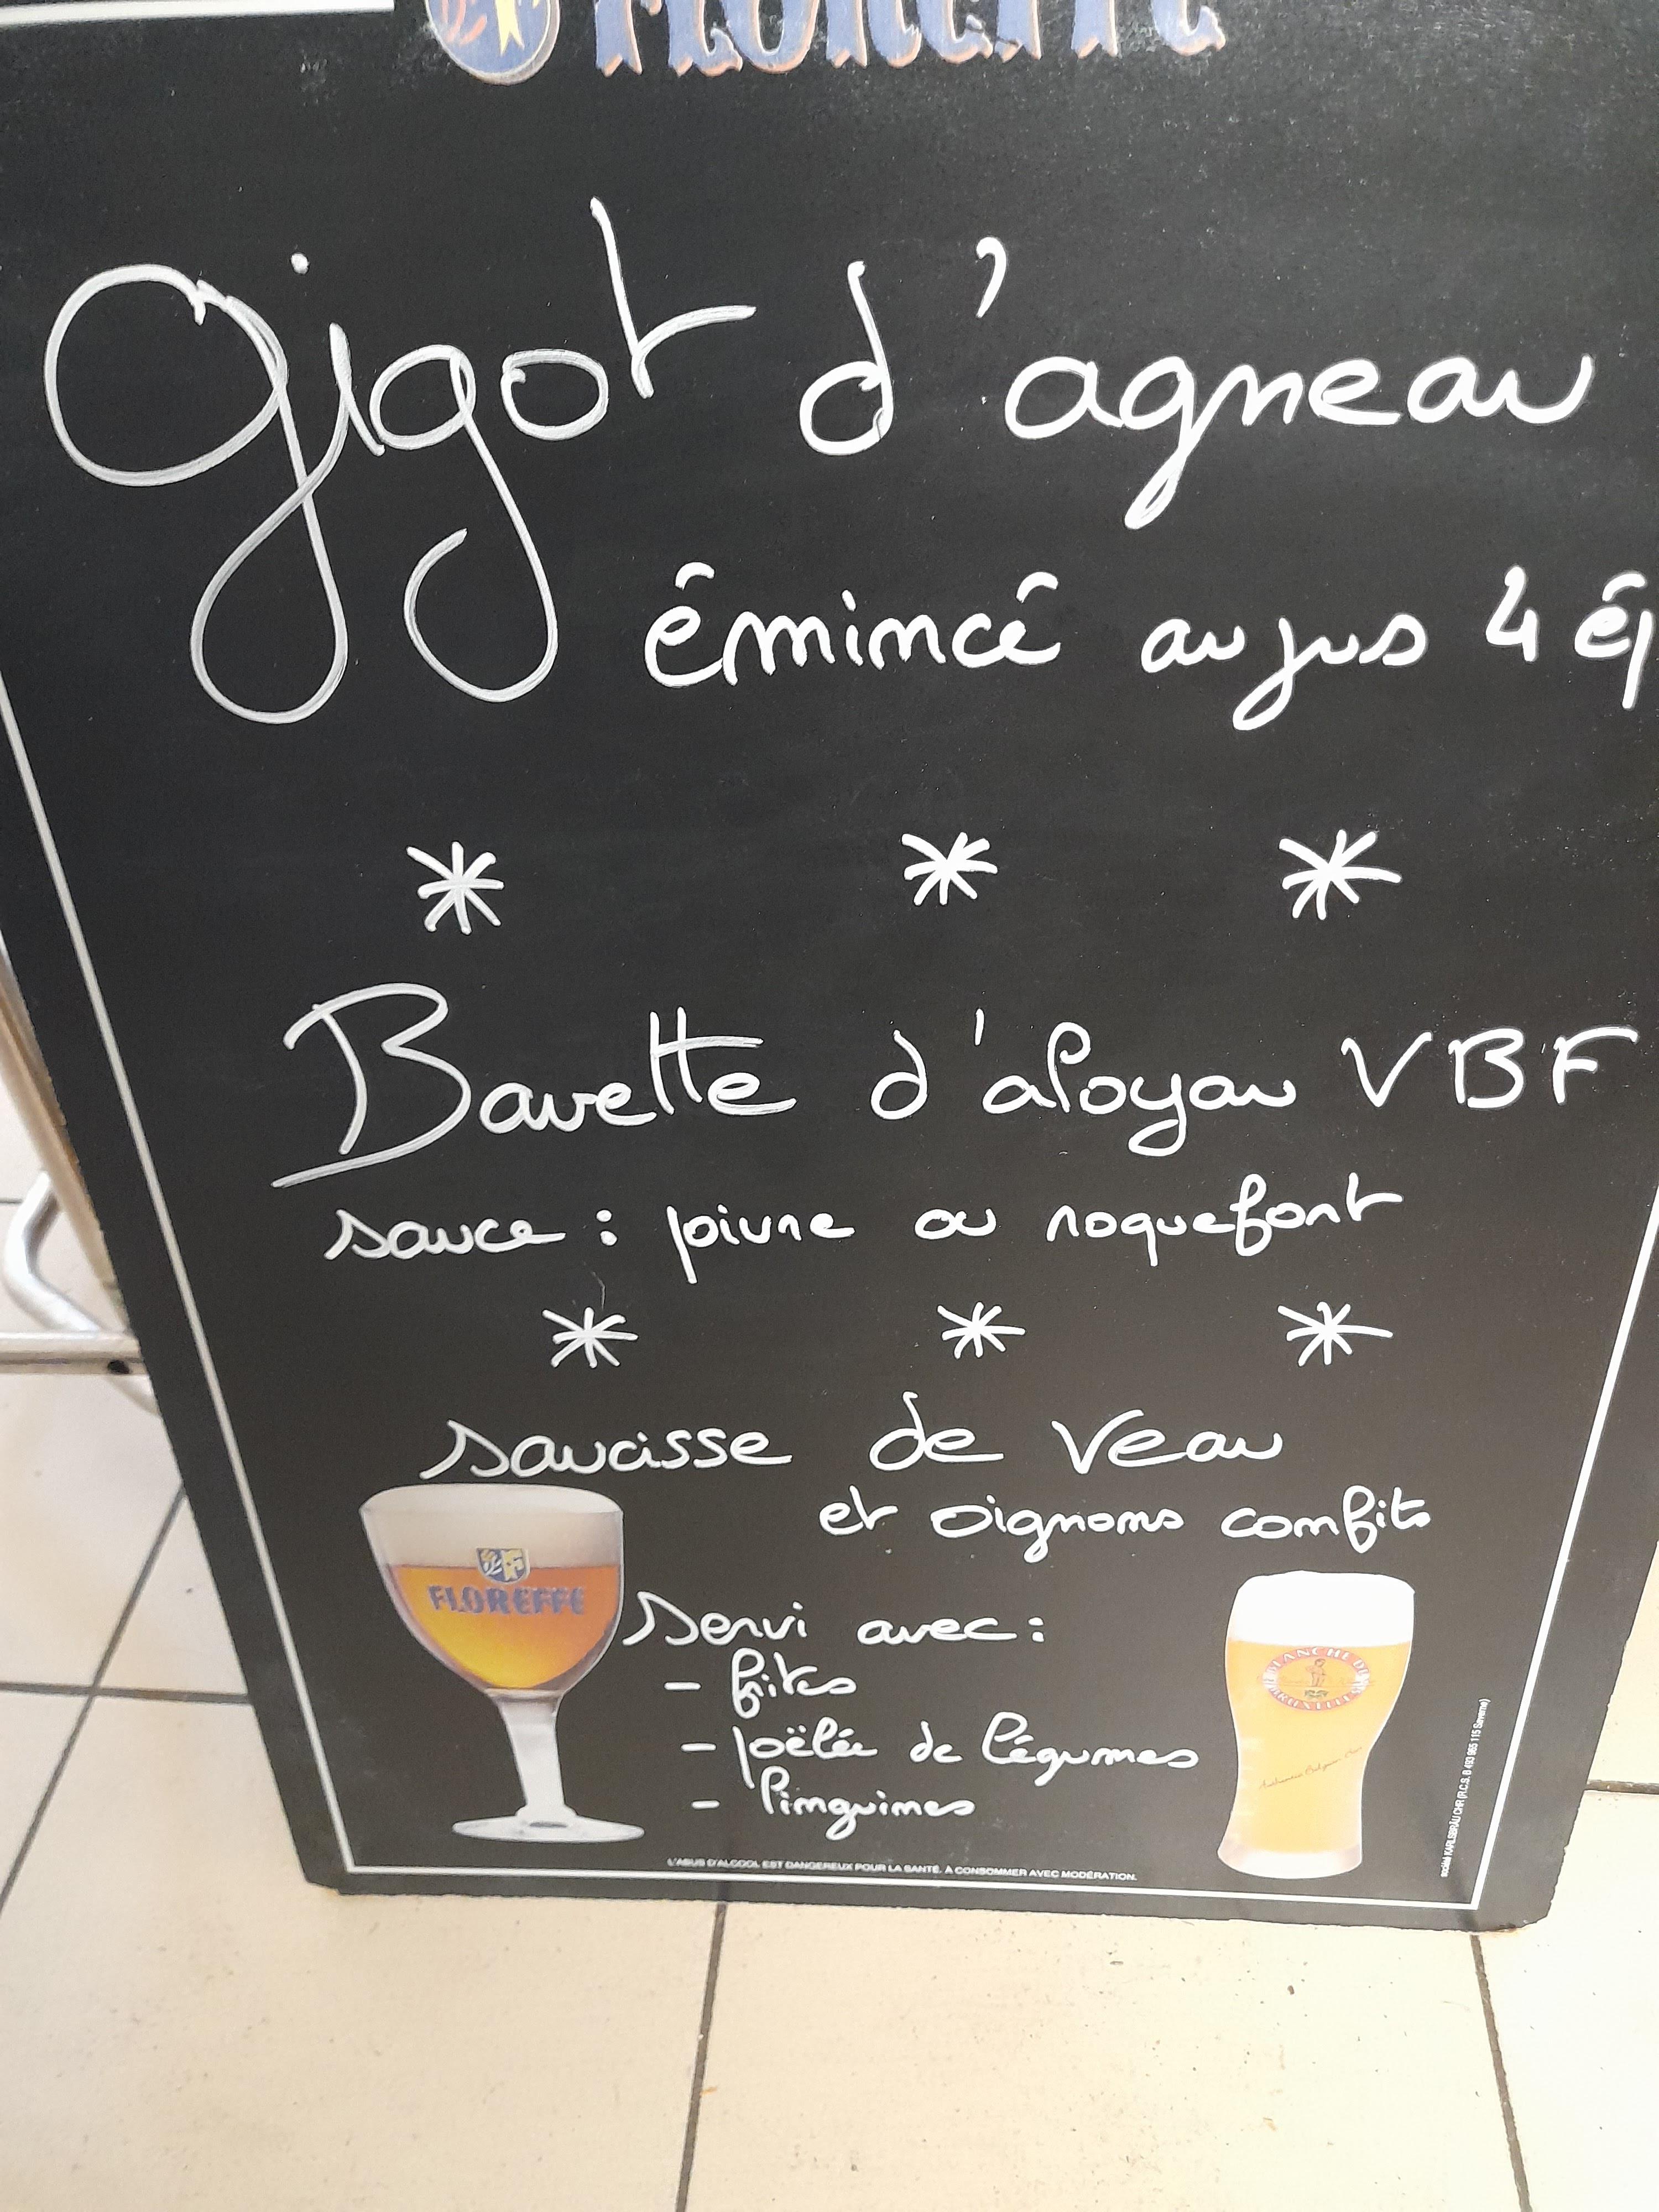 FLOREFFE
Gigot d'agneau
émincé au jus 4 ép
* * *
Bavette d'aloyau VBF
sauce : poivre ou roquefort
* * *
saucisse de veau
et oignons confits
FLOREFFE
servi avec :
- frites
- poëlée de légumes
- linguines
BLANCHE DE BRUXELLES
L'ABUS D'ALCOOL EST DANGEREUX POUR LA SANTÉ. À CONSOMMER AVEC MODÉRATION.
société KARLSBRÄU CHR (R.C.S. B 493 965 115 Saverne)